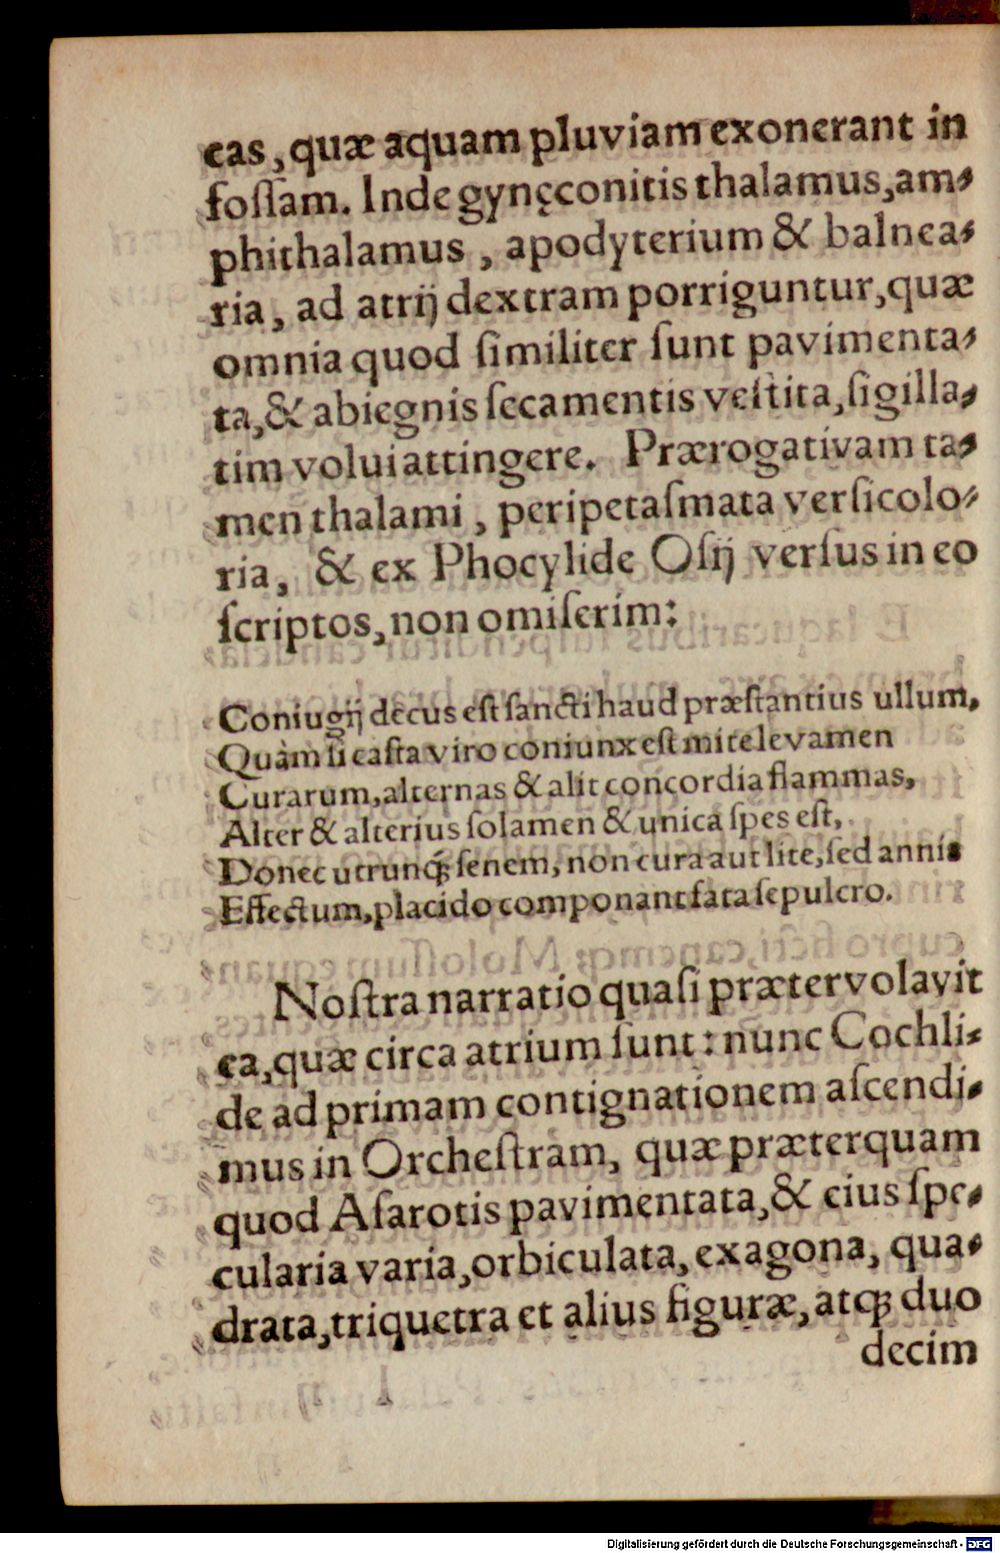 eas, quæ aquam pluviam exonerant in
foſſam. Inde gynęconitis thalamus, am⸗
phithalamus, apodyterium & balnea⸗
ria, ad atrij dextram porriguntur, quæ
omnia quod ſimiliter ſunt pavimenta⸗
ta, & abiegnis ſecamentis veſtita, ſigilla⸗
tim volui attingere. Prærogativam ta⸗
men thalami, peripetaſmata verſicolo⸗
ria, & ex Phocylide Oſij verſus in eo
ſcriptos, non omiſerim:
Coniugij decus eſt ſancti haud præſtantius ullum,
Quàm ſi caſta viro coniunx eſt mite levamen
Curarum, alternas & alit concordia flammas,
Alter & alterius ſolamen & unica ſpes eſt,
Donec utrunq́; ſenem, non cura aut lite, ſed annis
Effectum, placido componant fata ſepulcro.
Noſtra narratio quaſi prætervolavit
ea, quæ circa atrium ſunt: nunc Cochli⸗
de ad primam contignationem aſcendi⸗
mus in Orcheſtram, quæ præterquam
quod Aſarotis pavimentata, & eius ſpe⸗
cularia varia, orbiculata, exagona, qua⸗
drata, triquetra et alius figuræ, atq; duo
decim
Digitalisierung gefördert durch die Deutsche Forschungsgemeinschaft - DFG